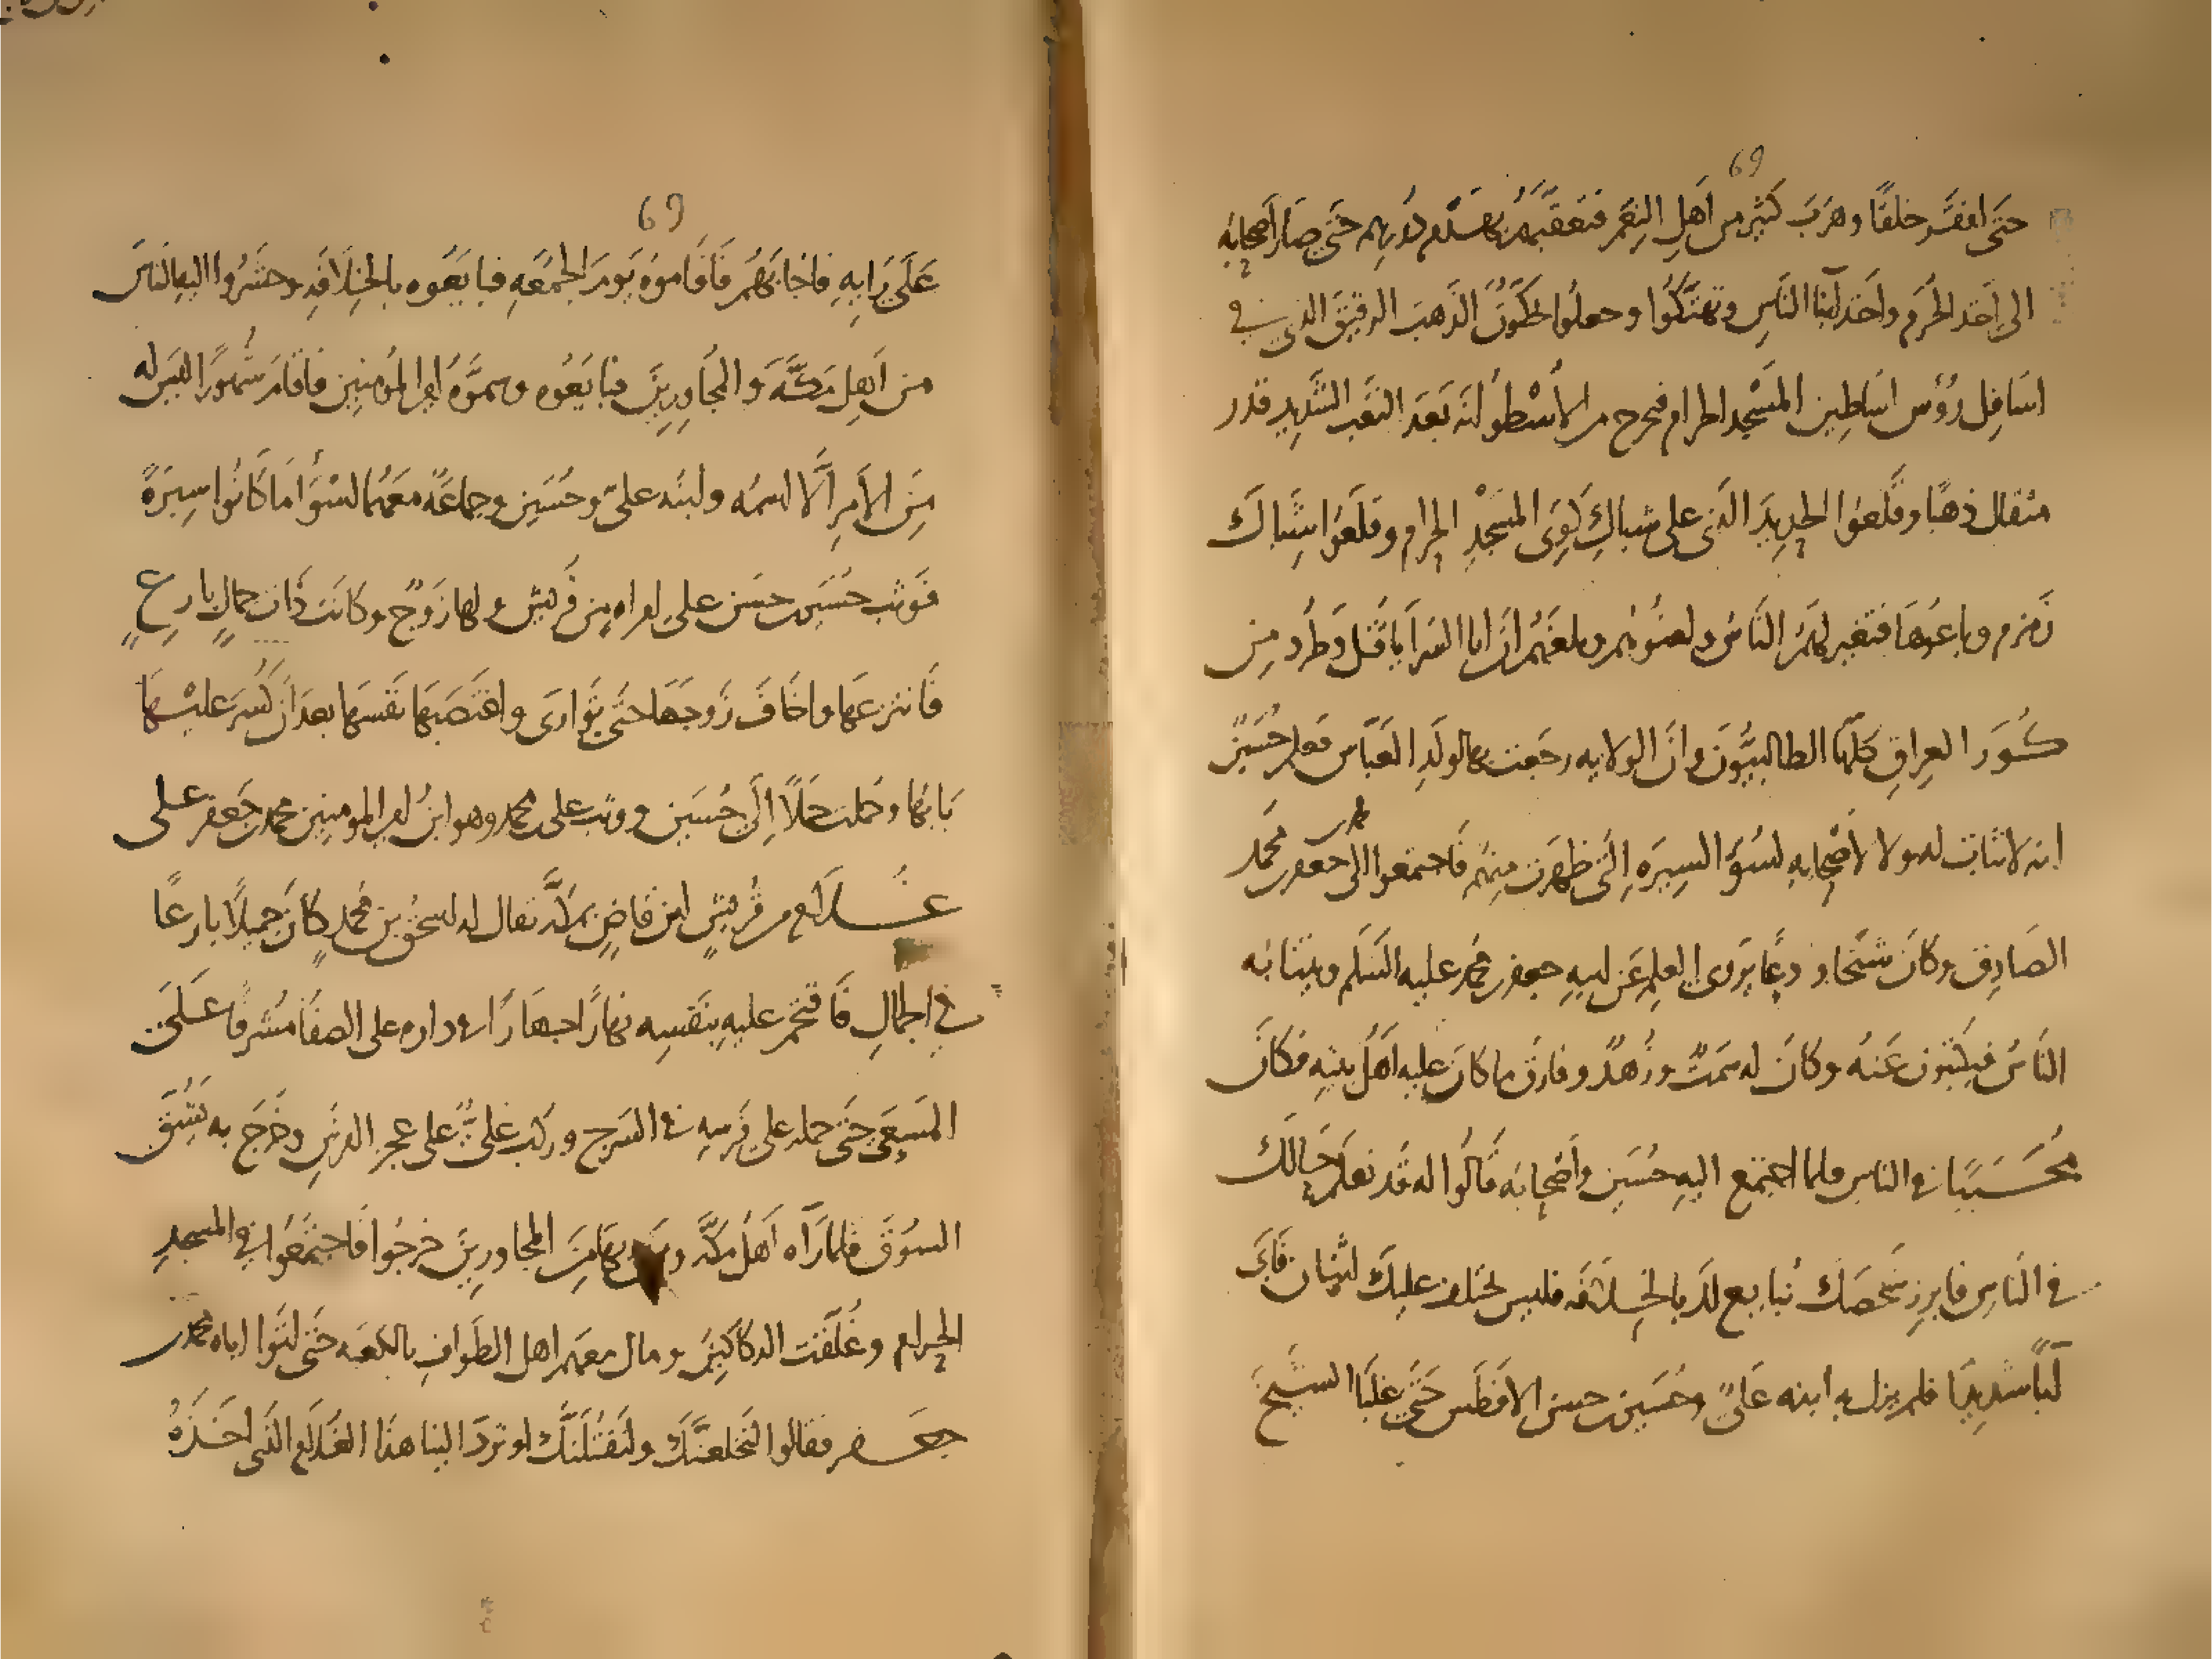 69
حتى افقر خلقًا وهرب كثير من اهل النعم فتعقبهم بهدم دورهم حتى صار اصحابه
الى اخذ الحرم واخذ ابنا الناس وتهتكوا وجعلوا يحكون الذهب الرقيق الذي في
اسافل رؤس اساطين المسجد الحرام فيخرج من الاسطوانة بعد التعب الشديد قدر
مثقال ذهبا وقلعوا الحديد الذي على شباك كوى المسجد الحرام وقلعوا شباك
زمزم وباعوها فتغير لهم الناس ولعنوهم وبلغهم ان ابا السرايا قتل وطرد من
كور العراق كلها الطالبيون وان الولايه رجعت بها لولد العباس فعلم حسين
انه لا ثبات له ولا لاصحابه لسوء السيره التي ظهرت منهم فاجتمعوا الى محمد بن جعفر بن محمد
الصادق وكان شيخا ودعًا يروى العلم عن ابيه جعفر بن محمد عليه السلم وينتابه
الناس فيكتبون عنه وكان له سمت وزهد وفارق ما كان عليه اهل بيته فكان
محببا في الناس فلما اجتمع اليه حسين واصحابه قالوا له قد نعلم حالك
في الناس فابرز شخصك نبايع لك بالخلافه فليس يختلف عليك اثنان فابى
ابا شديدا فلم يزل به ابنه على وحسين بن حسن الافطس حتى غلبا الشيخ
69
على رايه فاجابهم فاقاموه يوم الجمعه فبايعوه بالخلافه وحشروا اليه الناس
من اهل مكة والمجاورين فبايعوه وسموه امير المومنين فاقام شهورا ليس له
من الامر الا اسمه وابنه علي وحسين وجماعة معهما اسوا ما كانوا سيرة
فوثب حسين بن حسن على امراه من قريش ولها زوج وكانت ذات جمال بارع
فانتزعها واخاف زوجها حتى توارى واغتصبها نفسها بعد ان كسر عليها
بابها وحملت حملا الى حسين ووثب على بن محمد وهو ابن امير المومنين محمد بن جعفر على
غلام من قريش ابن قاض بمكة يقال له اسحق بن محمد كان جميلا بارعا
في الجمال فاقتحم عليه بنفسه نهارا جهارا في داره على الصفا مشرفا على
المسعى حتى حمله على فرسه في السرج وركب علي على عجز الفرس وخرج به يشق
السوق فلما راه اهل مكة ومن بها من المجاورين خرجوا فاجتمعوا في المسجد
الحرام وغلقت الدكاكين ومال معهم اهل الطواف بالكعبه حتى اتوا اباه محمد بن
جعفر فقالوا لنخلعنك ولنقتلنك او ترد الينا هذا الغلام الذي اخذه